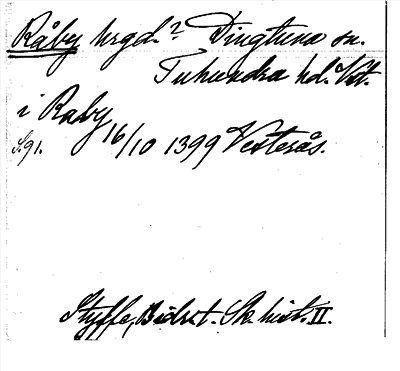 Råby hrgd.? Dingtuna sn.
Tuhundra hd. Vst.
i Raby
S. 91. 16/10 1399 Vesterås.
Styffe, Bidr. t. Sk. hist. II.